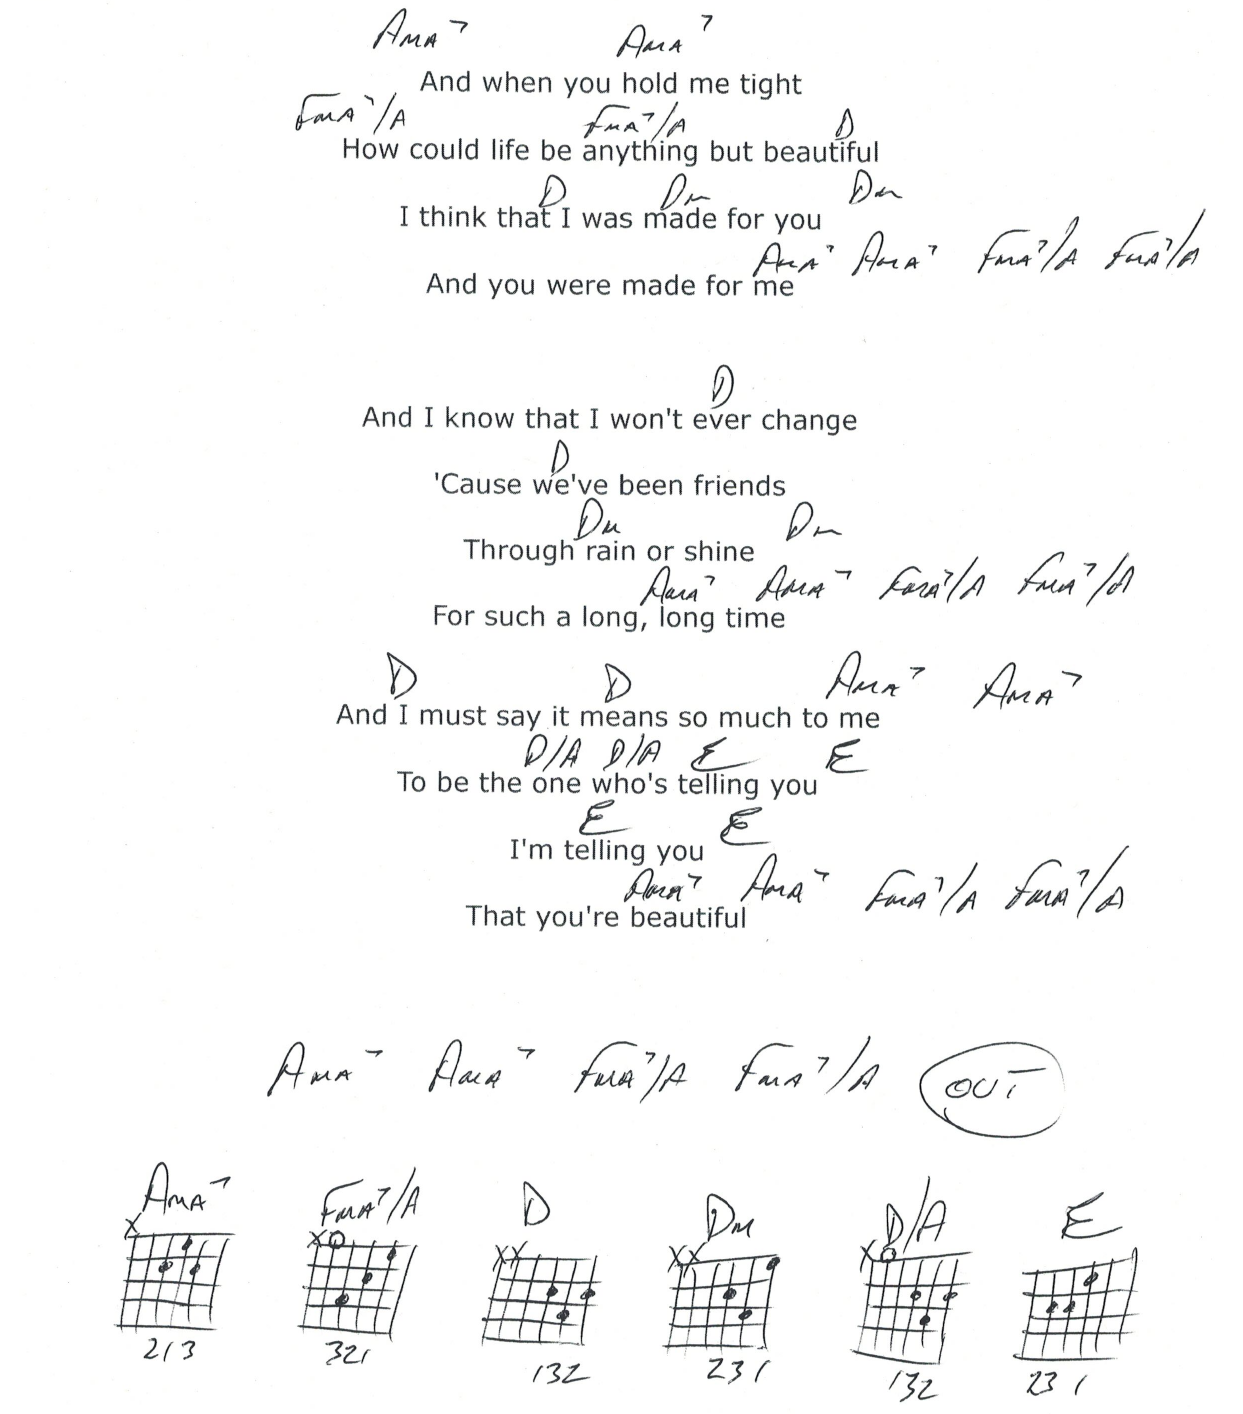 AMA7 AMA7
And when you hold me tight
FMA7/A FMA7/A D
How could life be anything but beautiful
D Dm Dm
I think that I was made for you
AMA7 AMA7 FMA7/A FMA7/A
And you were made for me
D
And I know that I won't ever change
D
'Cause we've been friends
Dm Dm
Through rain or shine
AMA7 AMA7 FMA7/A FMA7/A
For such a long, long time
D D AMA7 AMA7
And I must say it means so much to me
D/A D/A E E
To be the one who's telling you
E E
I'm telling you
AMA7 AMA7 FMA7/A FMA7/A
That you're beautiful
AMA7 AMA7 FMA7/A FMA7/A OUT
AMA7 FMA7/A D Dm D/A E
X XO XX XX XO
213 321 132 231 132 231